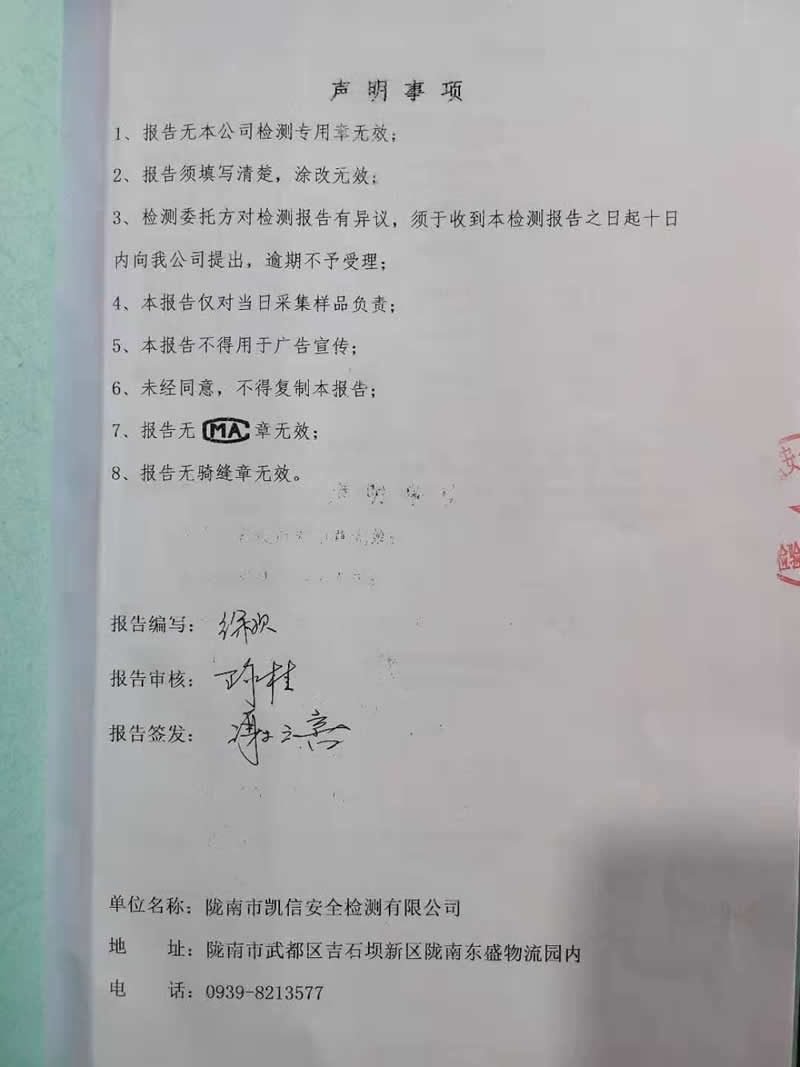 声明事项
1、报告无本公司检测专用章无效；
2、报告须填写清楚，涂改无效；
3、检测委托方对检测报告有异议，须于收到本检测报告之日起十日
内向我公司提出，逾期不予受理；
4、本报告仅对当日采集样品负责；
5、本报告不得用于广告宣传；
6、未经同意，不得复制本报告；
7、报告无 MA 章无效；
8、报告无骑缝章无效。
报告编写：
报告审核：
报告签发：
单位名称：陇南市凯信安全检测有限公司
地 址：陇南市武都区吉石坝新区陇南东盛物流园内
电 话：0939-8213577
安
检验